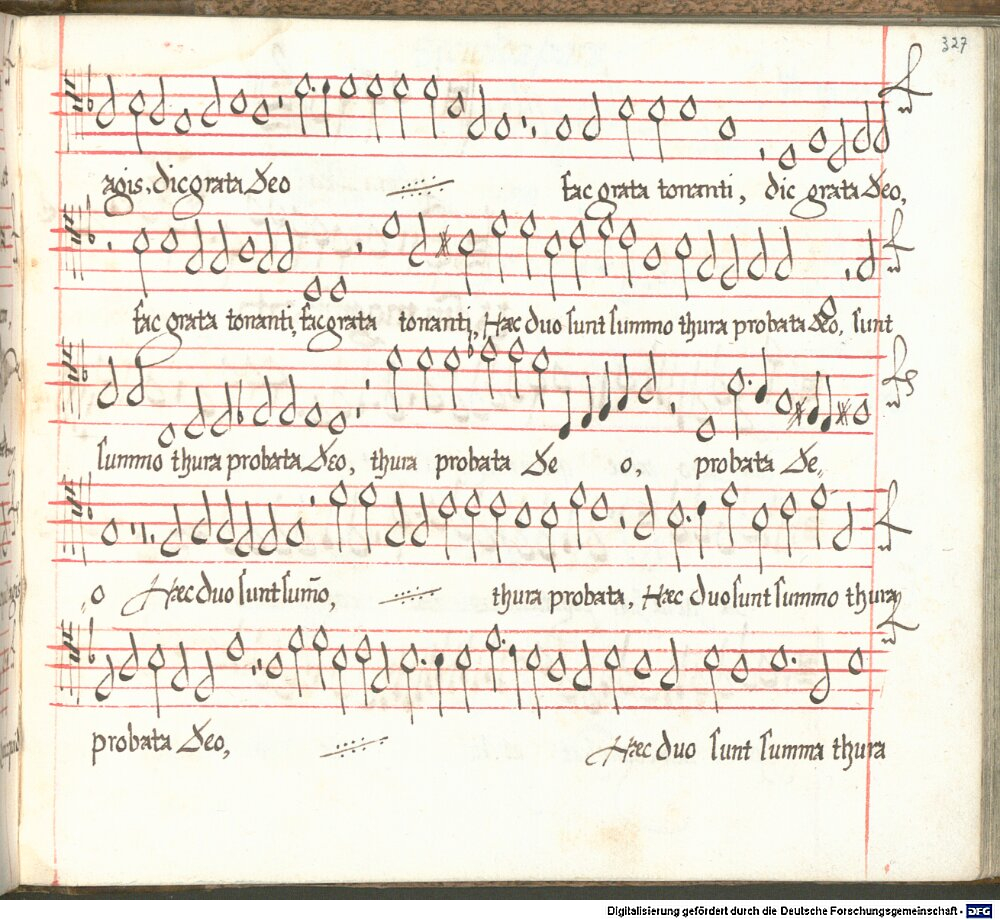 327
agis, dic grata Deo fac grata tonanti, dic grata Deo,
fac grata tonanti, fac grata tonanti, Hæc duo sunt summo thura probata Deo, sunt
summo thura probata Deo, thura probata De o, probata De„
„o Hæc duo sunt sum̃o, thura probata, Hæc duo sunt summo thura
probata Deo, Hæc duo sunt summa thura
Digitalisierung gefördert durch die Deutsche Forschungsgemeinschaft - DFG